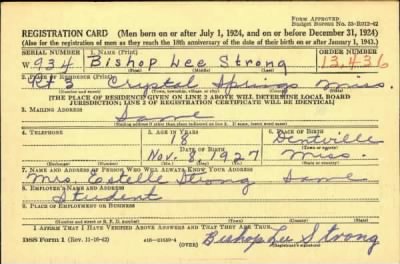 FORM APPROVED
Budget Bureau No. 33-R012-42
REGISTRATION CARD (Men born on or after July 1, 1924, and on or before December 31, 1924)
(Also for the registration of men as they reach the 18th anniversary of the date of their birth on or after January 1, 1943.)
SERIAL NUMBER 1. NAME (Print) ORDER NUMBER
W 934 Bishop Lee Strong 13,436
(First) (Middle) (Last)
2. PLACE OF RESIDENCE (Print)
Rt 3 Crystal Springs Miss.
(Number and street) (Town, township, village, or city) (County) (State)
[THE PLACE OF RESIDENCE GIVEN ON LINE 2 ABOVE WILL DETERMINE LOCAL BOARD
JURISDICTION; LINE 2 OF REGISTRATION CERTIFICATE WILL BE IDENTICAL]
3. MAILING ADDRESS
Same
4. TELEPHONE 5. AGE IN YEARS 6. PLACE OF BIRTH
18 Dentville
DATE OF BIRTH
Nov. 8, 1927 Miss.
(Mo.) (Day) (Yr.) (State or country)
7. NAME AND ADDRESS OF PERSON WHO WILL ALWAYS KNOW YOUR ADDRESS
Mrs. Estelle Strong Same
8. EMPLOYER'S NAME AND ADDRESS
Student
9. PLACE OF EMPLOYMENT OR BUSINESS
(Number and street or R. F. D. number) (Town) (County) (State)
I AFFIRM THAT I HAVE VERIFIED ABOVE ANSWERS AND THAT THEY ARE TRUE.
DSS Form 1 (Rev. 11-16-42) (OVER) Bishop Lee Strong